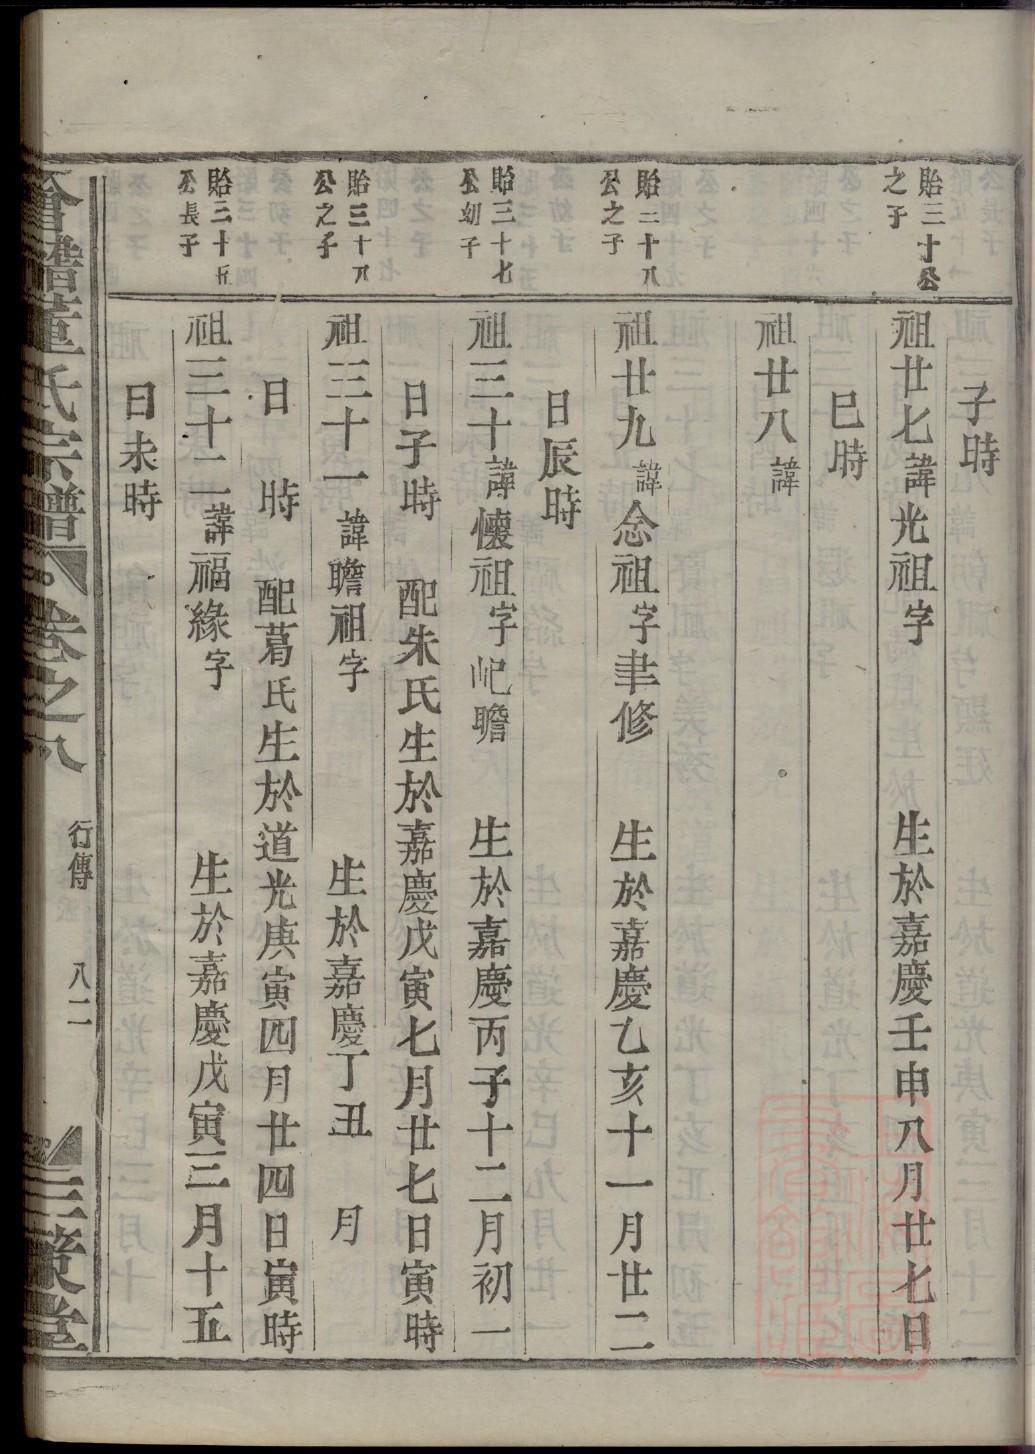 子時
貽三十公
之子
祖廿七諱光祖字 生於嘉慶壬申八月廿七日
巳時
祖廿八諱
貽二十八
公之子
祖廿九諱念祖字聿修 生於嘉慶乙亥十一月廿二
日辰時
貽三十七
公幼子
祖三十諱懷祖字屺瞻 生於嘉慶丙子十二月初一
日子時 配朱氏生於嘉慶戊寅七月廿七日寅時
貽三十八
公之子
祖三十一諱瞻祖字 生於嘉慶丁丑 月
日 時 配葛氏生於道光庚寅四月廿四日寅時
貽三十五
公長子
祖三十二諱福緣字 生於嘉慶戊寅三月十五
日未時
會稽董氏宗譜 卷之八 行傳 八二 三策堂